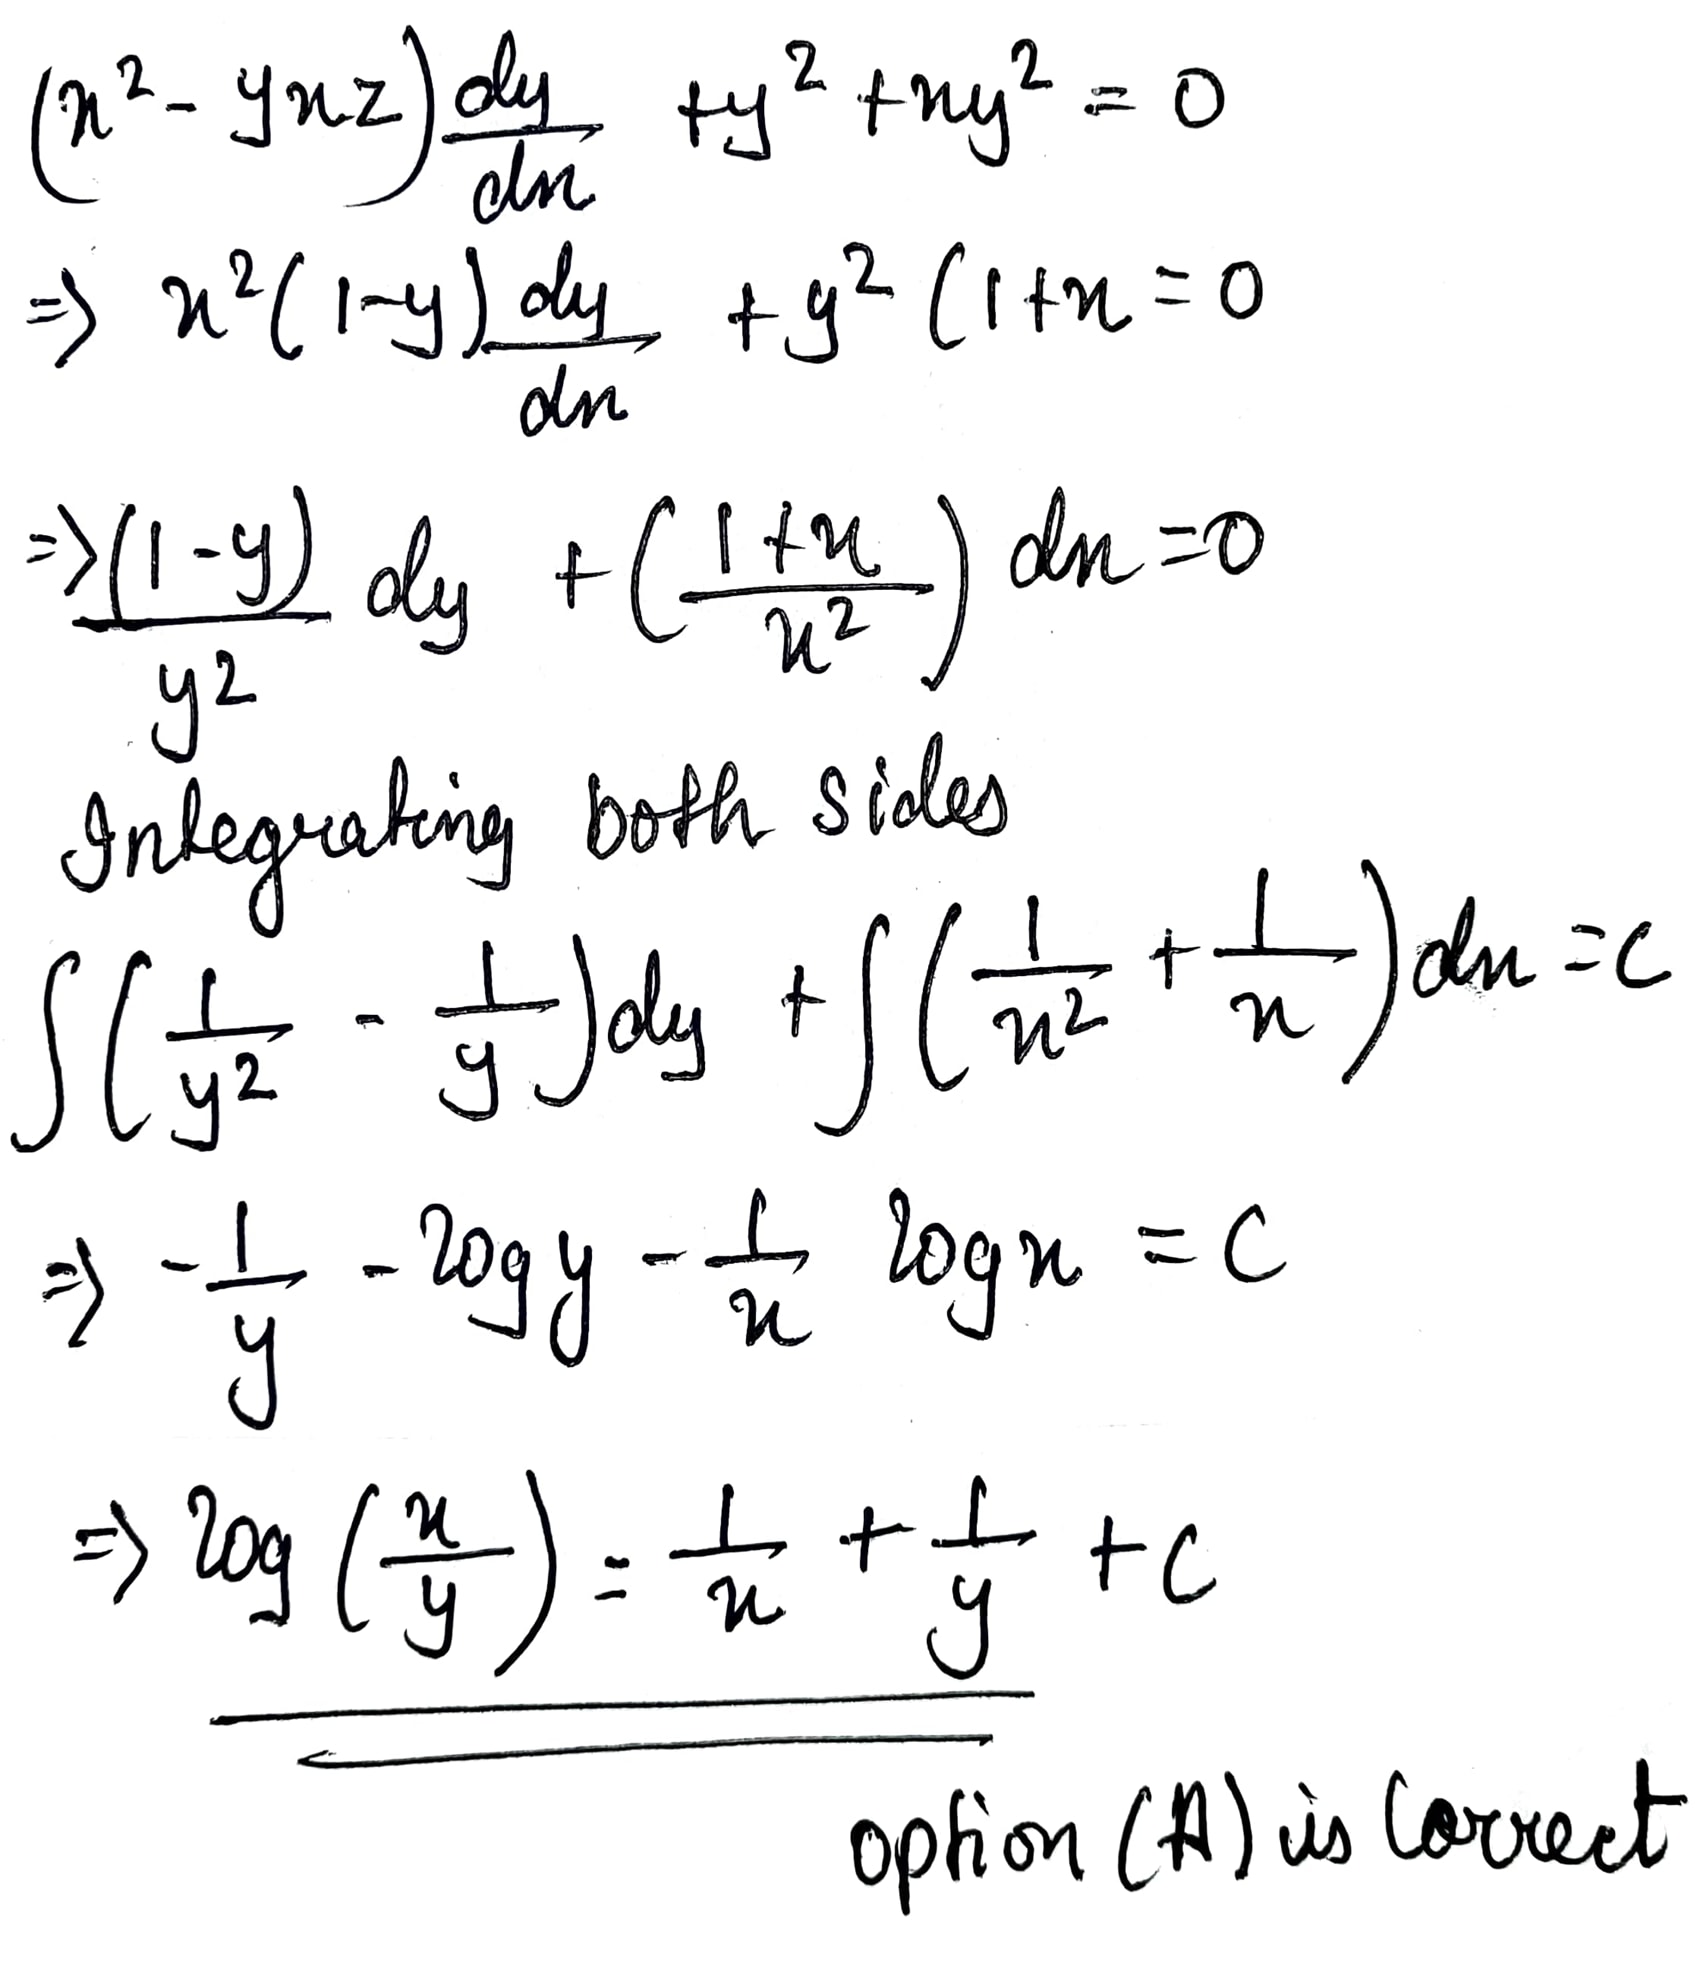 (x² - yxz) dy/dx + y² + xy² = 0
=> x² (1-y) dy/dx + y² (1+x = 0
=> (1-y)/y² dy + (1+x/x²) dx = 0
Integrating both sides
∫(1/y² - 1/y)dy + ∫(1/x² + 1/x)dx = c
=> -1/y - log y - 1/x log x = C
=> log (x/y) = 1/x + 1/y + C
option (A) is Correct